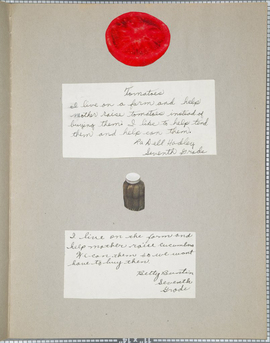 Tomatoes
I live on a farm and help
mother raise tomatoes instead of
buying them. I like to help tend
them and help can them.
Hadley
Seventh Grade
I live on the farm and
help mother raise cucumbers
We can them so we wont
have to buy them
Betty
Seventh
Grade